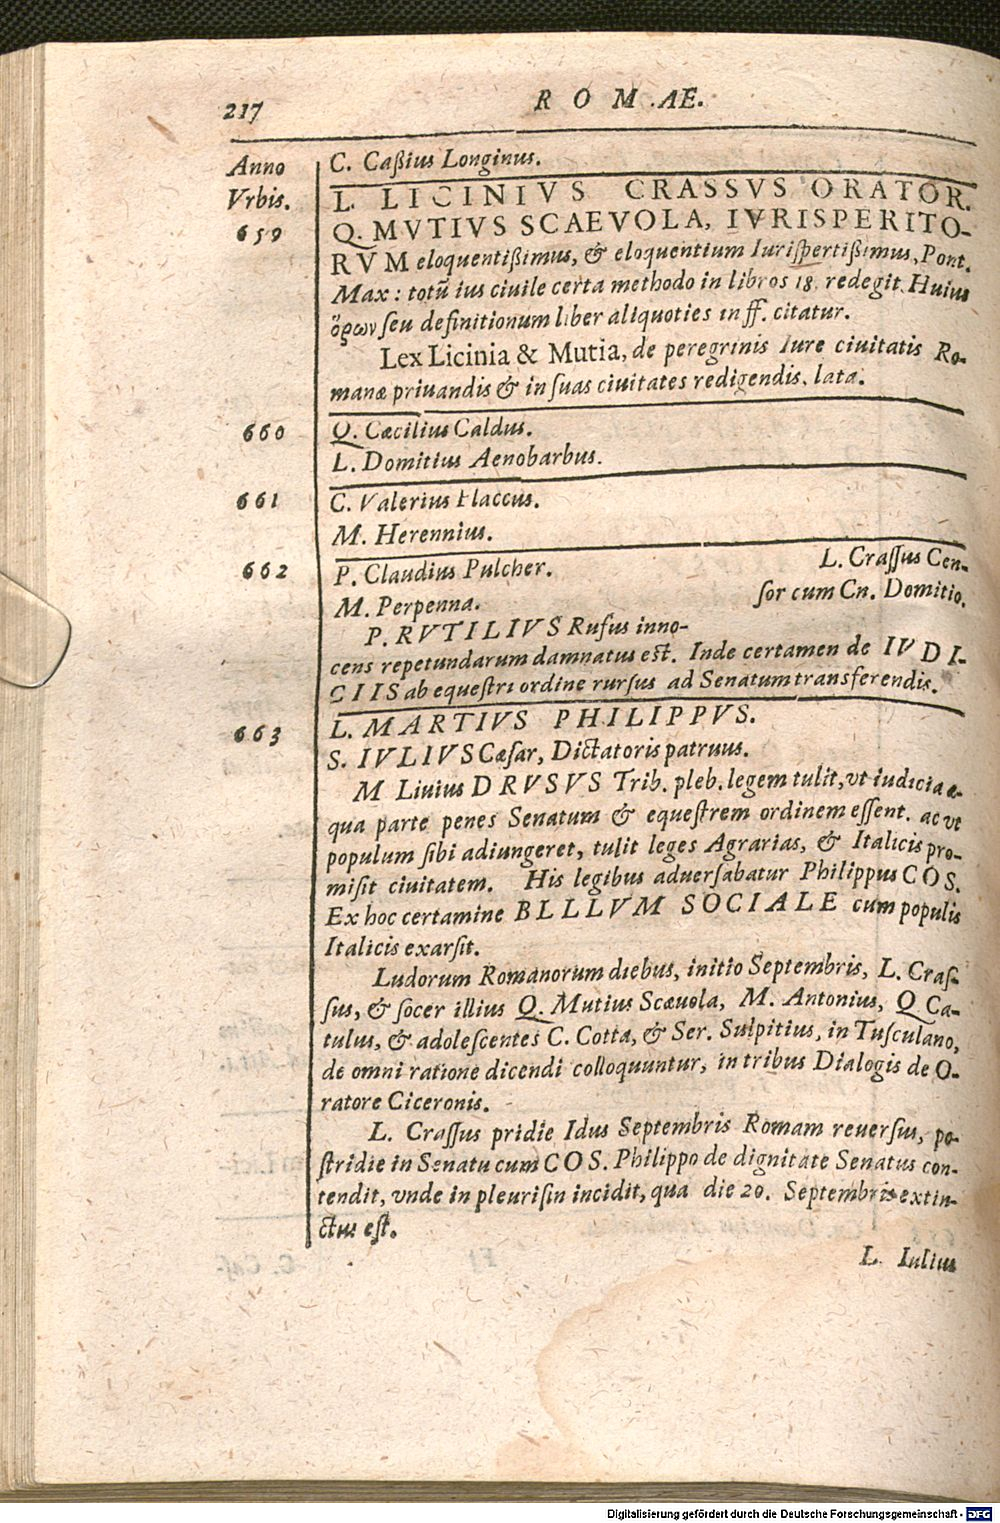 217 ROMAE.
Anno C. Caßius Longinus.
Vrbis. L. LICINIVS CRASSVS ORATOR.
659 Q. MVTIVS SCAEVOLA, IVRISPERITO-
RVM eloquentißimus, & eloquentium Iurisperti ßimus, Pont.
Max: totũ ius ciuile certa methodo in libros 18. redegit. Huius
ὅρων seu definitionum liber aliquoties in ff. citatur.
Lex Licinia & Mutia, de peregrinis Iure ciuitatis Ro-
manæ priuandis & in suas ciuitates redigendis. lata.
660 Q. Cæcilius Caldus.
L. Domitius Aenobarbus.
661 C. Valerius Flaccus.
M. Herennius.
662 P. Claudius Pulcher. L. Craſſus Cen-
M. Perpenna. ſor cum Cn. Domitio.
P. RVTILIVS Rufus inno-
cens repetundarum damnatus eſt. Inde certamen de IVDI-
CIIS ab equeſtri ordine rurſus ad Senatum transferendis.
663 L. MARTIVS PHILIPPVS.
S. IVLIVS Cæſar, Dictatoris patruus.
M Liuius DRVSVS Trib. pleb. legem tulit, vt iudicia æ-
qua parte penes Senatum & equeſtrem ordinem eſſent. ac vt
populum ſibi adiungeret, tulit leges Agrarias, & Italicis pro-
miſit ciuitatem. His legibus aduerſabatur Philippus COS.
Ex hoc certamine BLLLVM SOCIALE cum populis
Italicis exarſit.
Ludorum Romanorum diebus, initio Septembris, L. Craſ-
ſus, & ſocer illius Q. Mutius Scæuola, M. Antonius, Q Ca-
tulus, & adoleſcentes C. Cotta, & Ser. Sulpitius, in Tuſculano,
de omni ratione dicendi colloquuntur, in tribus Dialogis de O-
ratore Ciceronis.
L. Craſſus pridie Idus Septembris Romam reuerſus, po-
ſtridie in Senatu cum COS. Philippo de dignitate Senatus con-
tendit, vnde in pleuriſin incidit, qua die 20. Septembris extin-
ctus eſt.
L. Iulius
Digitalisierung gefördert durch die Deutsche Forschungsgemeinschaft - DFG